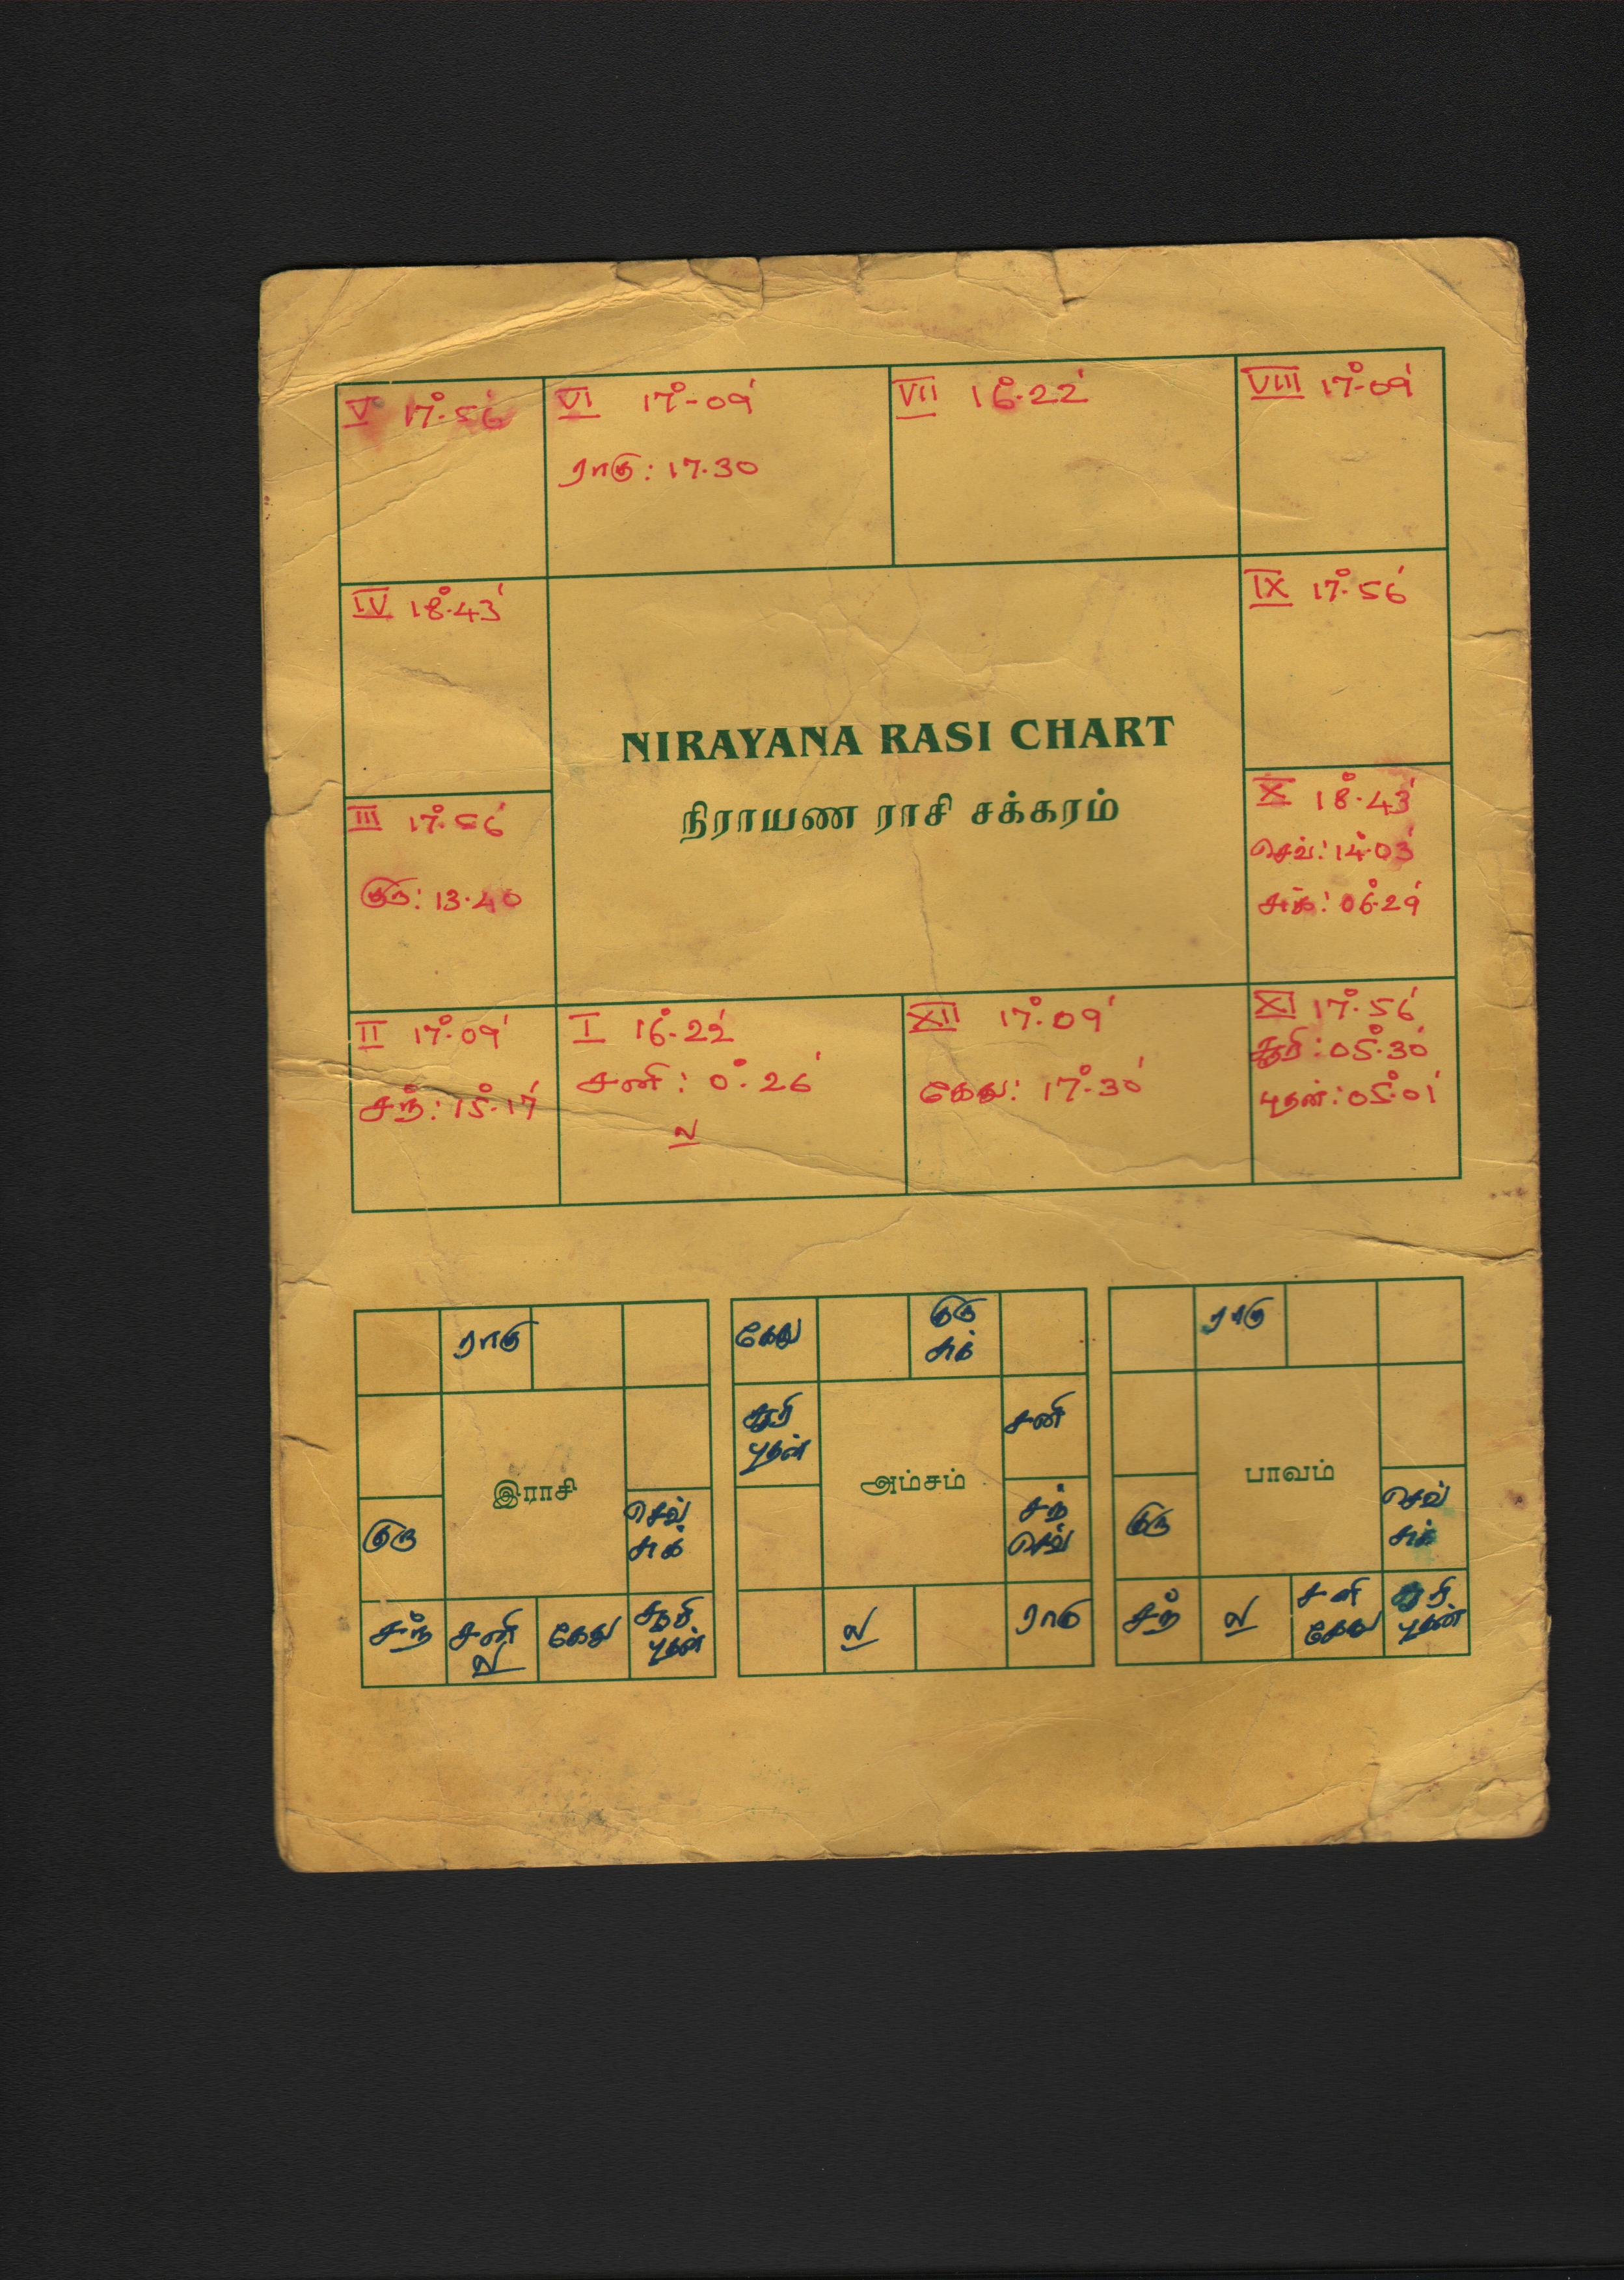 V 17°.56'
VI 17°-09'
ராகு: 17.30
VII 16°.22'
VIII 17°-09'
IV 18°.43'
IX 17°.56'
NIRAYANA RASI CHART
நிராயண ராசி சக்கரம்
III 17°.56'
குரு: 13.40
X 18°.43'
செவ்: 14°.03'
சுக்: 06°.29'
II 17°.09'
சந்: 15°.17'
I 16°.22'
சனி: 0°.26'
ல
XII 17°.09'
கேது: 17°.30'
XI 17°.56'
சூரி: 05°.30'
புதன்: 05°.01'
ராகு
இராசி
குரு
செவ்
சுக்
சந்
சனி
ல
கேது
சூரி
புதன்
கேது
குரு
சுக்
சூரி
புதன்
சனி
அம்சம்
சந்
செவ்
ல
ராகு
ராகு
பாவம்
குரு
செவ்
சுக்
சந்
ல
சனி
கேது
சூரி
புதன்